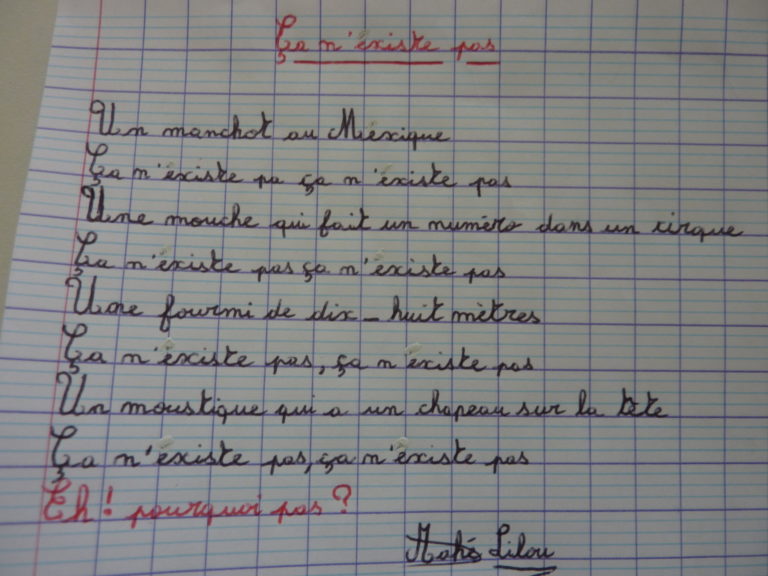 Ça n'éxiste pas
Un manchot au Méxique
Ça n'éxiste pa ça n'éxiste pas
Une mouche qui fait un numéro dans un cirque
Ça n'éxiste pas ça n'éxiste pas
Une fourmi de dix-huit mètres
Ça n'éxiste pas, ça n'éxiste pas
Un moustique qui a un chapeau sur la tête
Ça n'éxiste pas, ça n'éxiste pas
Eh! pourquoi pas?
Lilou